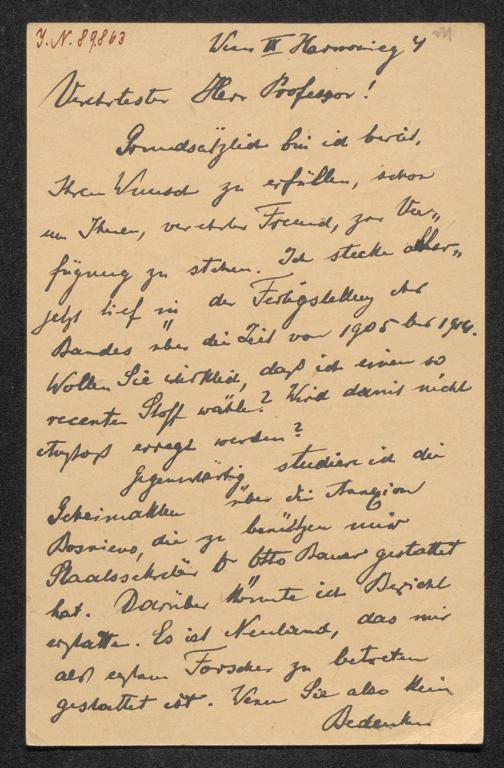 J. N. 89.863
Wien III Harmonieg 4
Verehrtester Herr Professor!
Grundsätzlich bin ich bereit,
Ihren Wunsch zu erfüllen, schon
um Ihnen, verehrter Freund, zur Ver„
fügung zu stehen. Ich stecke aber„
jetzt tief in der Fertigstellung des
Bandes über die Zeit von 1905 bis 1914.
Wollen Sie wirklich, daß ich einen so
recenten Stoff wähle? Wird damit nicht
Anstoß erregt werden?
Gegenwärtig studiere ich die
Geheimakten über die Annexion
Bosniens, die zu benützen mir
Staatssekretär Dr Otto Bauer gestattet
hat. Darüber könnte ich Bericht
erstatten. Es ist Neuland, das mir
als erstem Forscher zu betreten
gestattet ist. Wenn Sie also kein
Bedenken